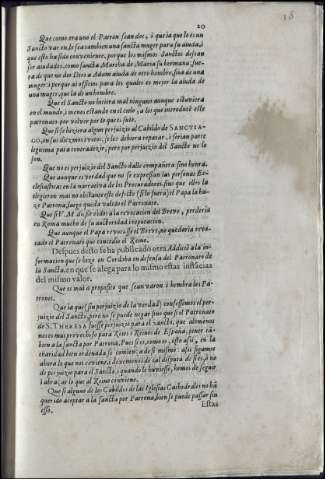 20
18
Que como era uno el Patron sea dos, ò que ia que lo es un
Sancto varon, lo sea tambien una sancta muger para su aiuda, i
que esto ha sido conveniente, porque los mismos Sanctos desean
ser aiudados, como sancta Martha de Maria su hermana, fue-
ra de que no dio Dios a Adam aiuda de otro hombre, sino de una
muger: porque ai oficios para los quales es mejor la aiuda de
una muger, que la de un hombre.
Que el Sancto no hiziera mal ninguno aunque estuviera
en el mundo, i menos estando en el cielo, a los que introduxò este
patronato por volver por lo que es justo.
Que si se hiziera algun perjuizio al Cabildo de SANCTIA-
GO, en sus diezmos i voto, se les deberà reparar, i serian parte
legitima para remediarse, pero por perjuizio del Sancto no lo
son.
Que no es perjuizio del Sancto darle compañera sino honra.
Que aunque es verdad que no se expressan las personas Ec-
clesiasticas en la narrativa de los Procuradores, sino que ellos la
eligieron mas no obstante este defecto (si lo fuera) el Papa la ha-
ze Patrona, luego queda valido el Patronato.
Que si V. M. diesse vado a la revocacion del Breve, perderia
en Roma mucho de su autoridad i opinacion.
Que aunque el Papa revocasse el Breve, no quedaria revo-
cado el Patronato que concedio el Reino.
Despues desto ha publicado otra Addicio à la in-
formacion que se hizo en Cordoba en defensa del Patronato de
la Sancta, en que se alega para lo mismo estas instãcias
del mismo valor.
Que es mal a proposito que sean varon i hembra los Pa-
trones.
Que ia que (sin perjuizio de la verdad) confessemos el per-
juizio del Sancto, pero no se puede negar sino que si el Patronato
de S. THERESA fuesse perjuizio para el sancto, que alomenos
es mui provechoso para Rei i Reinos de España, pues tẽ-
drán a la sancta por Patrona. Pues si es, como es, esto assi, en la
charidad bien ordenada se comiença de si mismo: assi sigamos
ahora lo que nos conviene, i devemos de tal disputa de si es, ò no
es perjuizio para el Sancto, i quando le huviesse, hemos de seguir
i abraçar lo que al Reino conviene.
Que si alguno de los Cabildos de las Iglesias Cathedrales no hã
querido aceptar a la sancta por Patrona, bien se puede passar sin
esso.
Estas